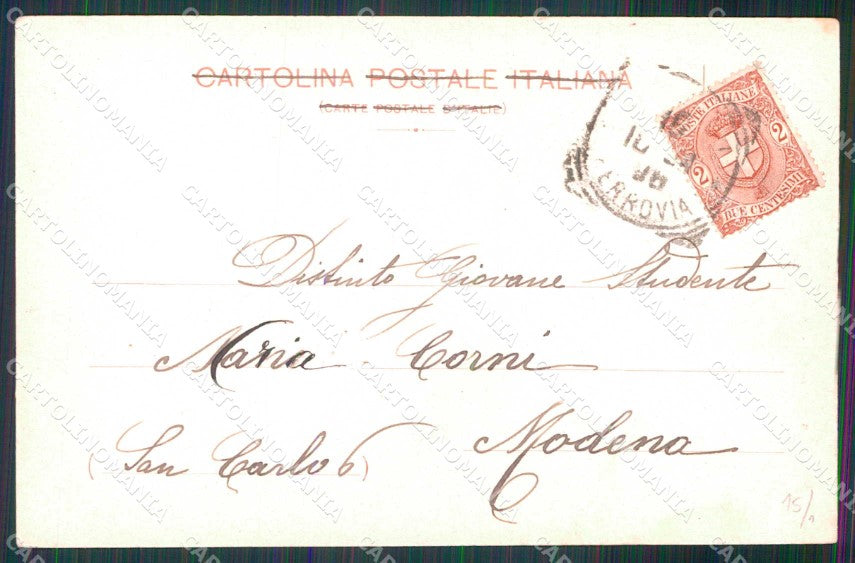 CARTOLINA POSTALE ITALIANA
(CARTE POSTALE D'ITALIE)
POSTE ITALIANE
2 2
DUE CENTESIMI
10
06
FERROVIA
Distinto Giovane Studente
Maria Corni
Modena
(San Carlo 6)
15/1
CARTOLINOMANIA